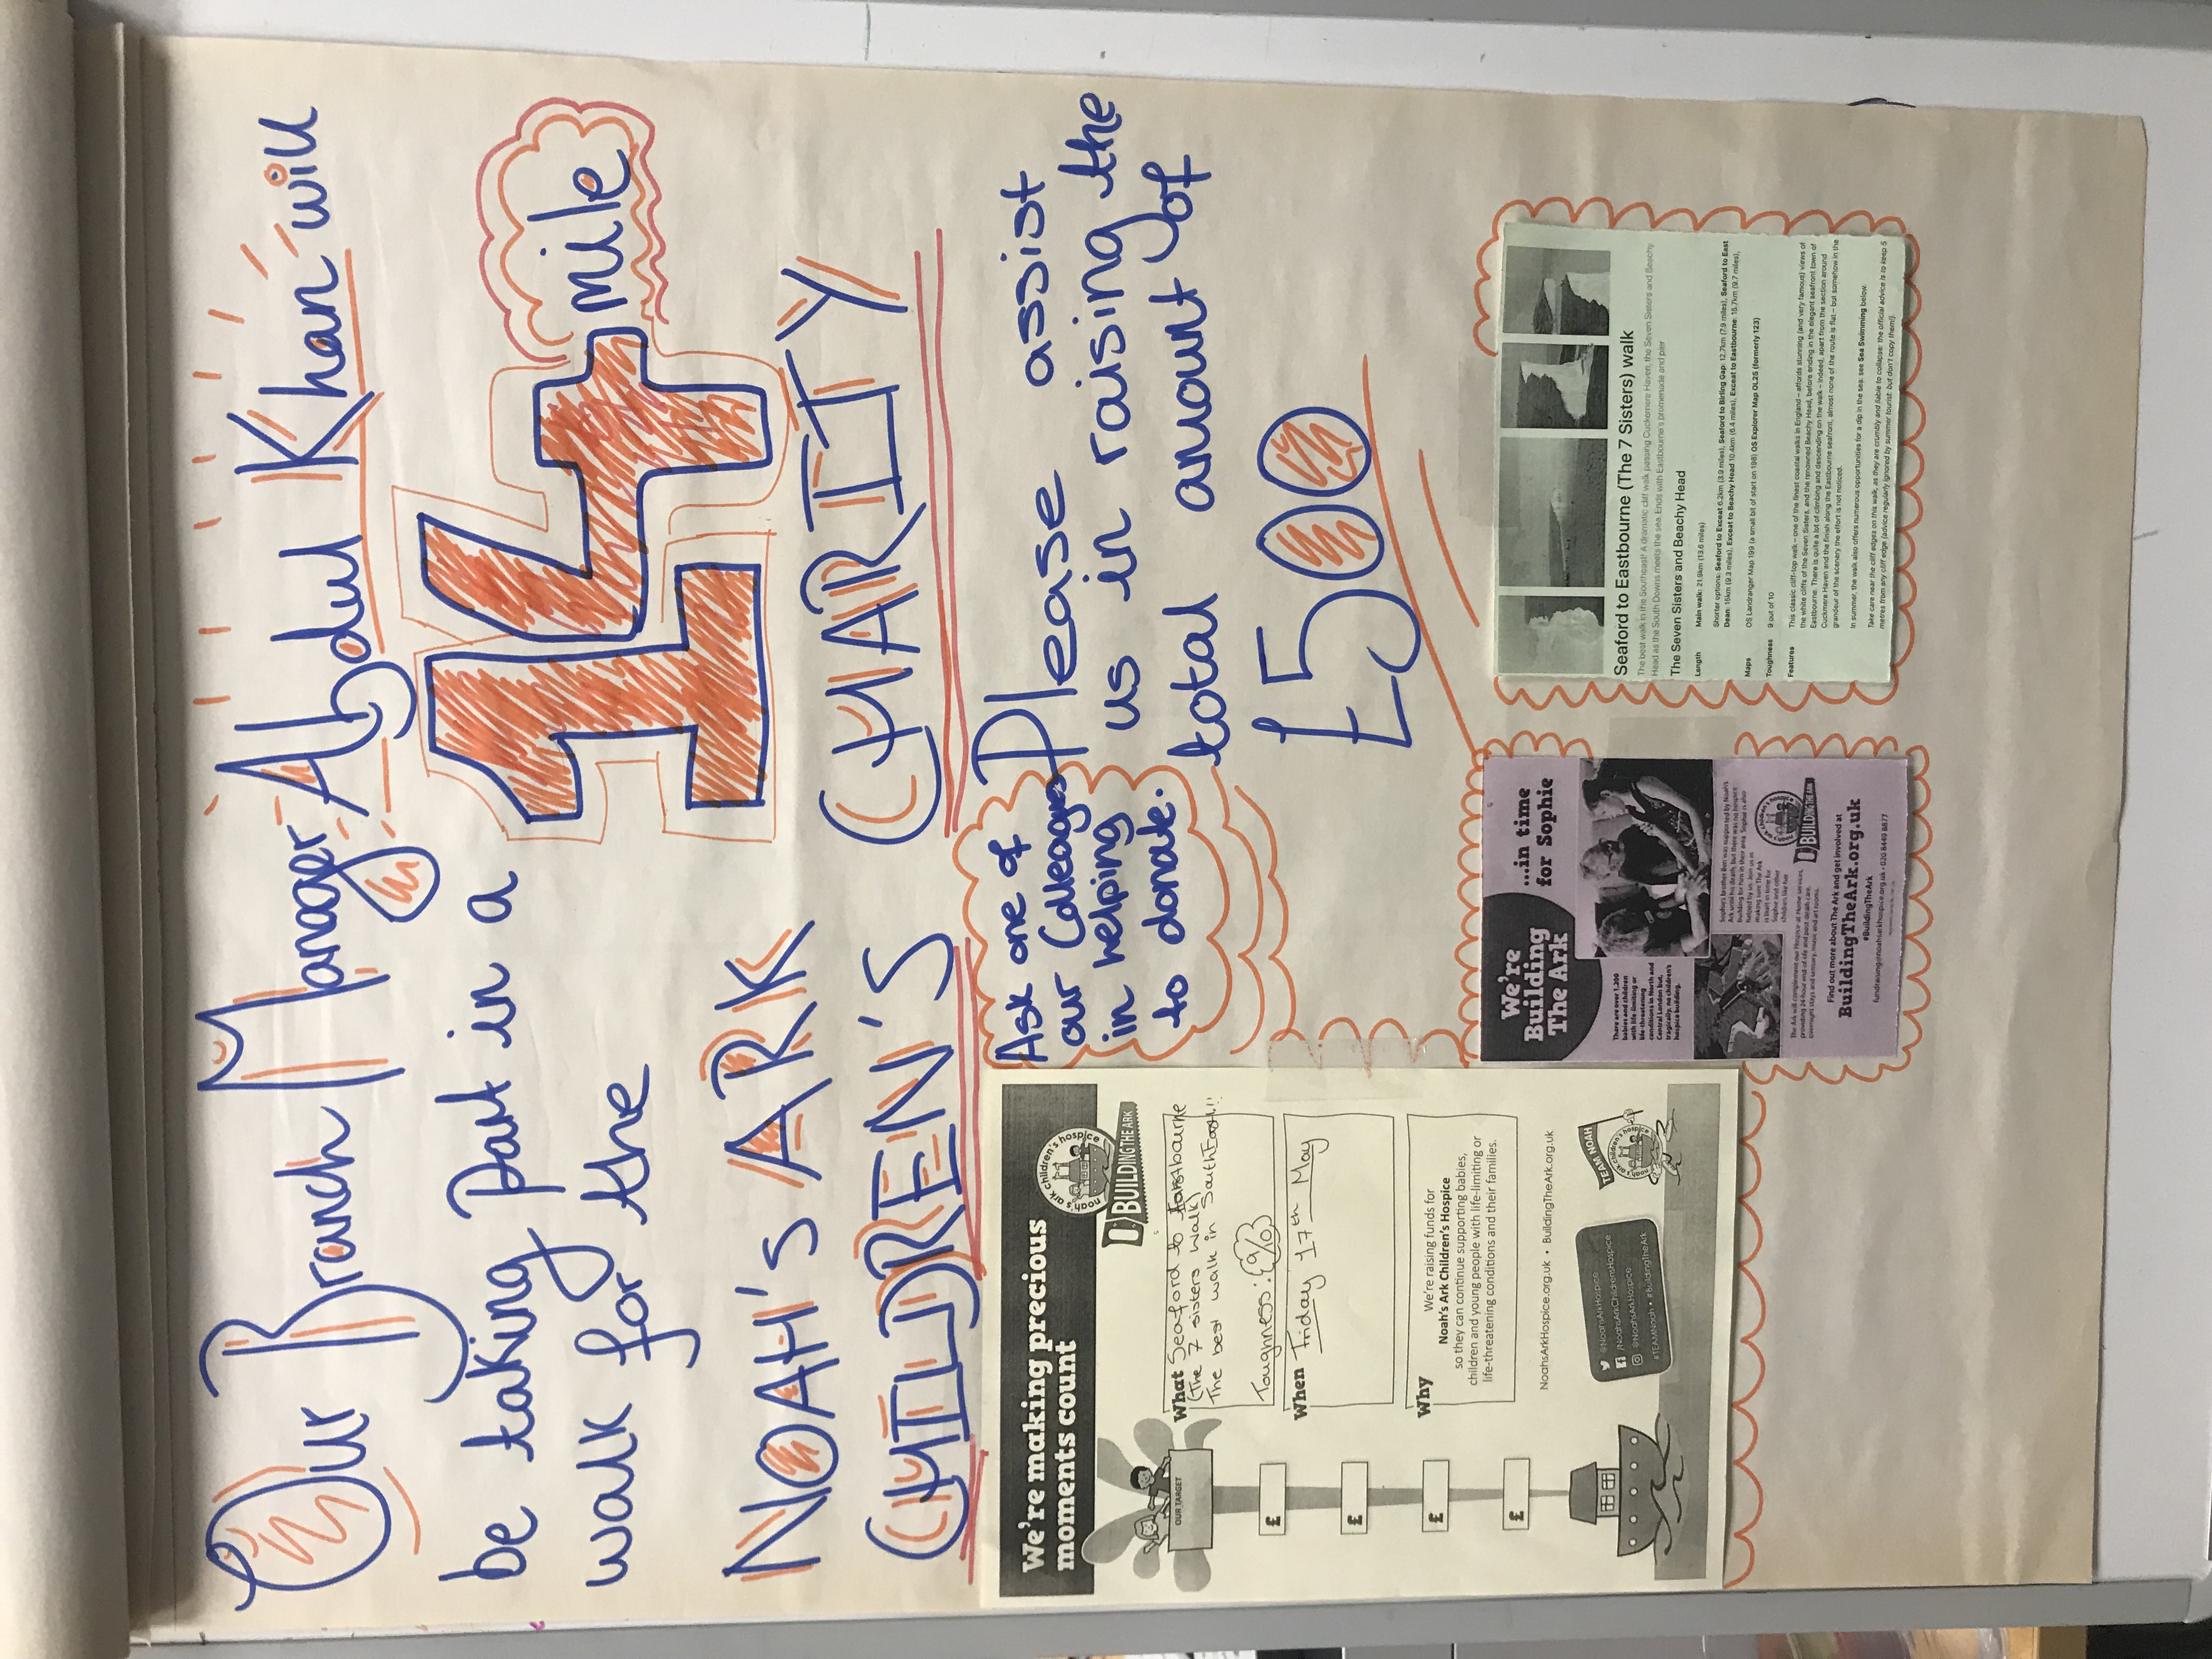 Our Branch Manager Abdul Khan will
be taking Part in a
walk for the
14 mile
NOAH'S ARK
CHILDREN'S CHARITY
Ask one of
our Colleagues
in helping
to donate.
Please assist
us in raising the
total amount of
£500
We're making precious
moments count
noah's ark children's hospice
BUILDING THE ARK
OUR TARGET
£
£
£
£
What Seaford to Eastbourne
(The 7 sisters walk)
The best walk in SouthEast!!
Toughness: 9/10
When Friday 17th May
Why
We're raising funds for
Noah's Ark Children's Hospice
so they can continue supporting babies,
children and young people with life-limiting or
life-threatening conditions and their families.
NoahsArkHospice.org.uk • BuildingTheArk.org.uk
@NoahsArkHospice
/NoahsArkChildrensHospice
@NoahsArkHospice
#TEAMNoah • #BuildingTheArk
TEAM NOAH
noah's ark children's hospice
We're
Building
The Ark
...in time
for Sophie
There are over 1,200
babies and children
with life-limiting or
life-threatening
conditions in North and
Central London but,
tragically, no children's
hospice building.
Sophie's brother Ben was supported by Noah's
Ark until his death, but there was no hospice
building for him in their area. Sophie is also
helped by us. Join us in
making sure The Ark
is built in time for
Sophie and other
children like her.
The Ark will complement our Hospice at Home services,
providing 24-hour end of life and post-death care,
overnight stays and sensory, music and art rooms.
noah's ark children's hospice
BUILDING THE ARK
Find out more about The Ark and get involved at
BuildingTheArk.org.uk
#BuildingTheArk
fundraising@noahsarkhospice.org.uk • 020 8449 8877
Seaford to Eastbourne (The 7 Sisters) walk
The best walk in the Southeast! A dramatic cliff walk passing Cuckmere Haven, the Seven Sisters and Beachy
Head as the South Downs meets the sea. Ends with Eastbourne's promenade and pier
The Seven Sisters and Beachy Head
Length Main walk: 21.9km (13.6 miles)
Shorter options: Seaford to Exceat 6.2km (3.9 miles), Seaford to Birling Gap: 12.7km (7.9 miles), Seaford to East
Dean: 15km (9.3 miles), Exceat to Beachy Head 10.4km (6.4 miles), Exceat to Eastbourne: 15.7km (9.7 miles),
Maps OS Landranger Map 199 (a small bit of start on 198) OS Explorer Map OL25 (formerly 123)
Toughness 9 out of 10
Features This classic cliff-top walk – one of the finest coastal walks in England – affords stunning (and very famous) views of
the white cliffs of the Seven Sisters, and the renowned Beachy Head, before ending in the elegant seafront town of
Eastbourne. There is quite a lot of climbing and descending on the walk – indeed, apart from the section around
Cuckmere Haven and the finish along the Eastbourne seafront, almost none of the route is flat – but somehow in the
grandeur of the scenery the effort is not noticed.
In summer, the walk also offers numerous opportunities for a dip in the sea: see Sea Swimming below.
Take care near the cliff edges on this walk, as they are crumbly and liable to collapse: the official advice is to keep 5
metres from any cliff edge (advice regularly ignored by summer tourist: but don't copy them!).